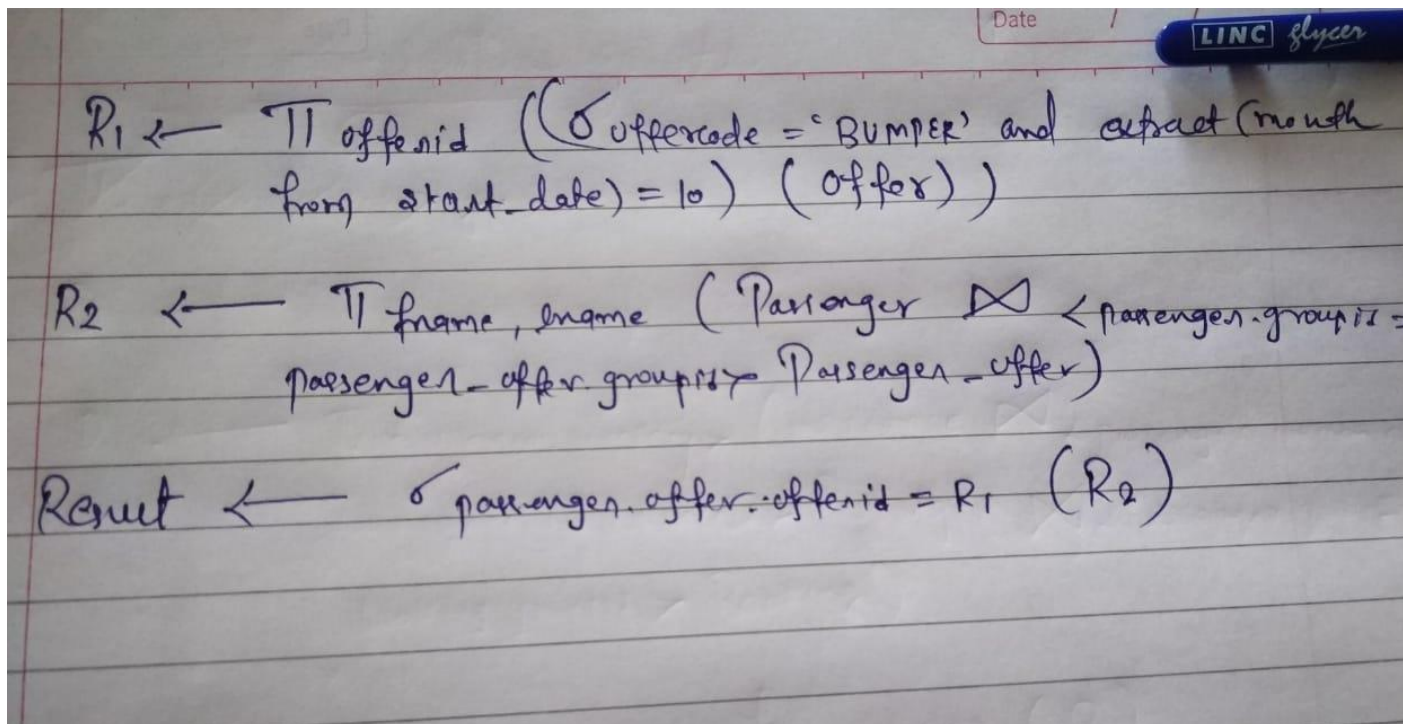 Date / /
LINC glycer
R1 ← π offerid ((σ offercode = 'BUMPER' and extract (month
from start_date) = 10) (offer))
R2 ← π fname, lname (Passenger ⋈ <passenger.groupid =
passenger_offer.groupid> Passenger_offer)
Result ← σ passenger.offer.offerid = R1 (R2)